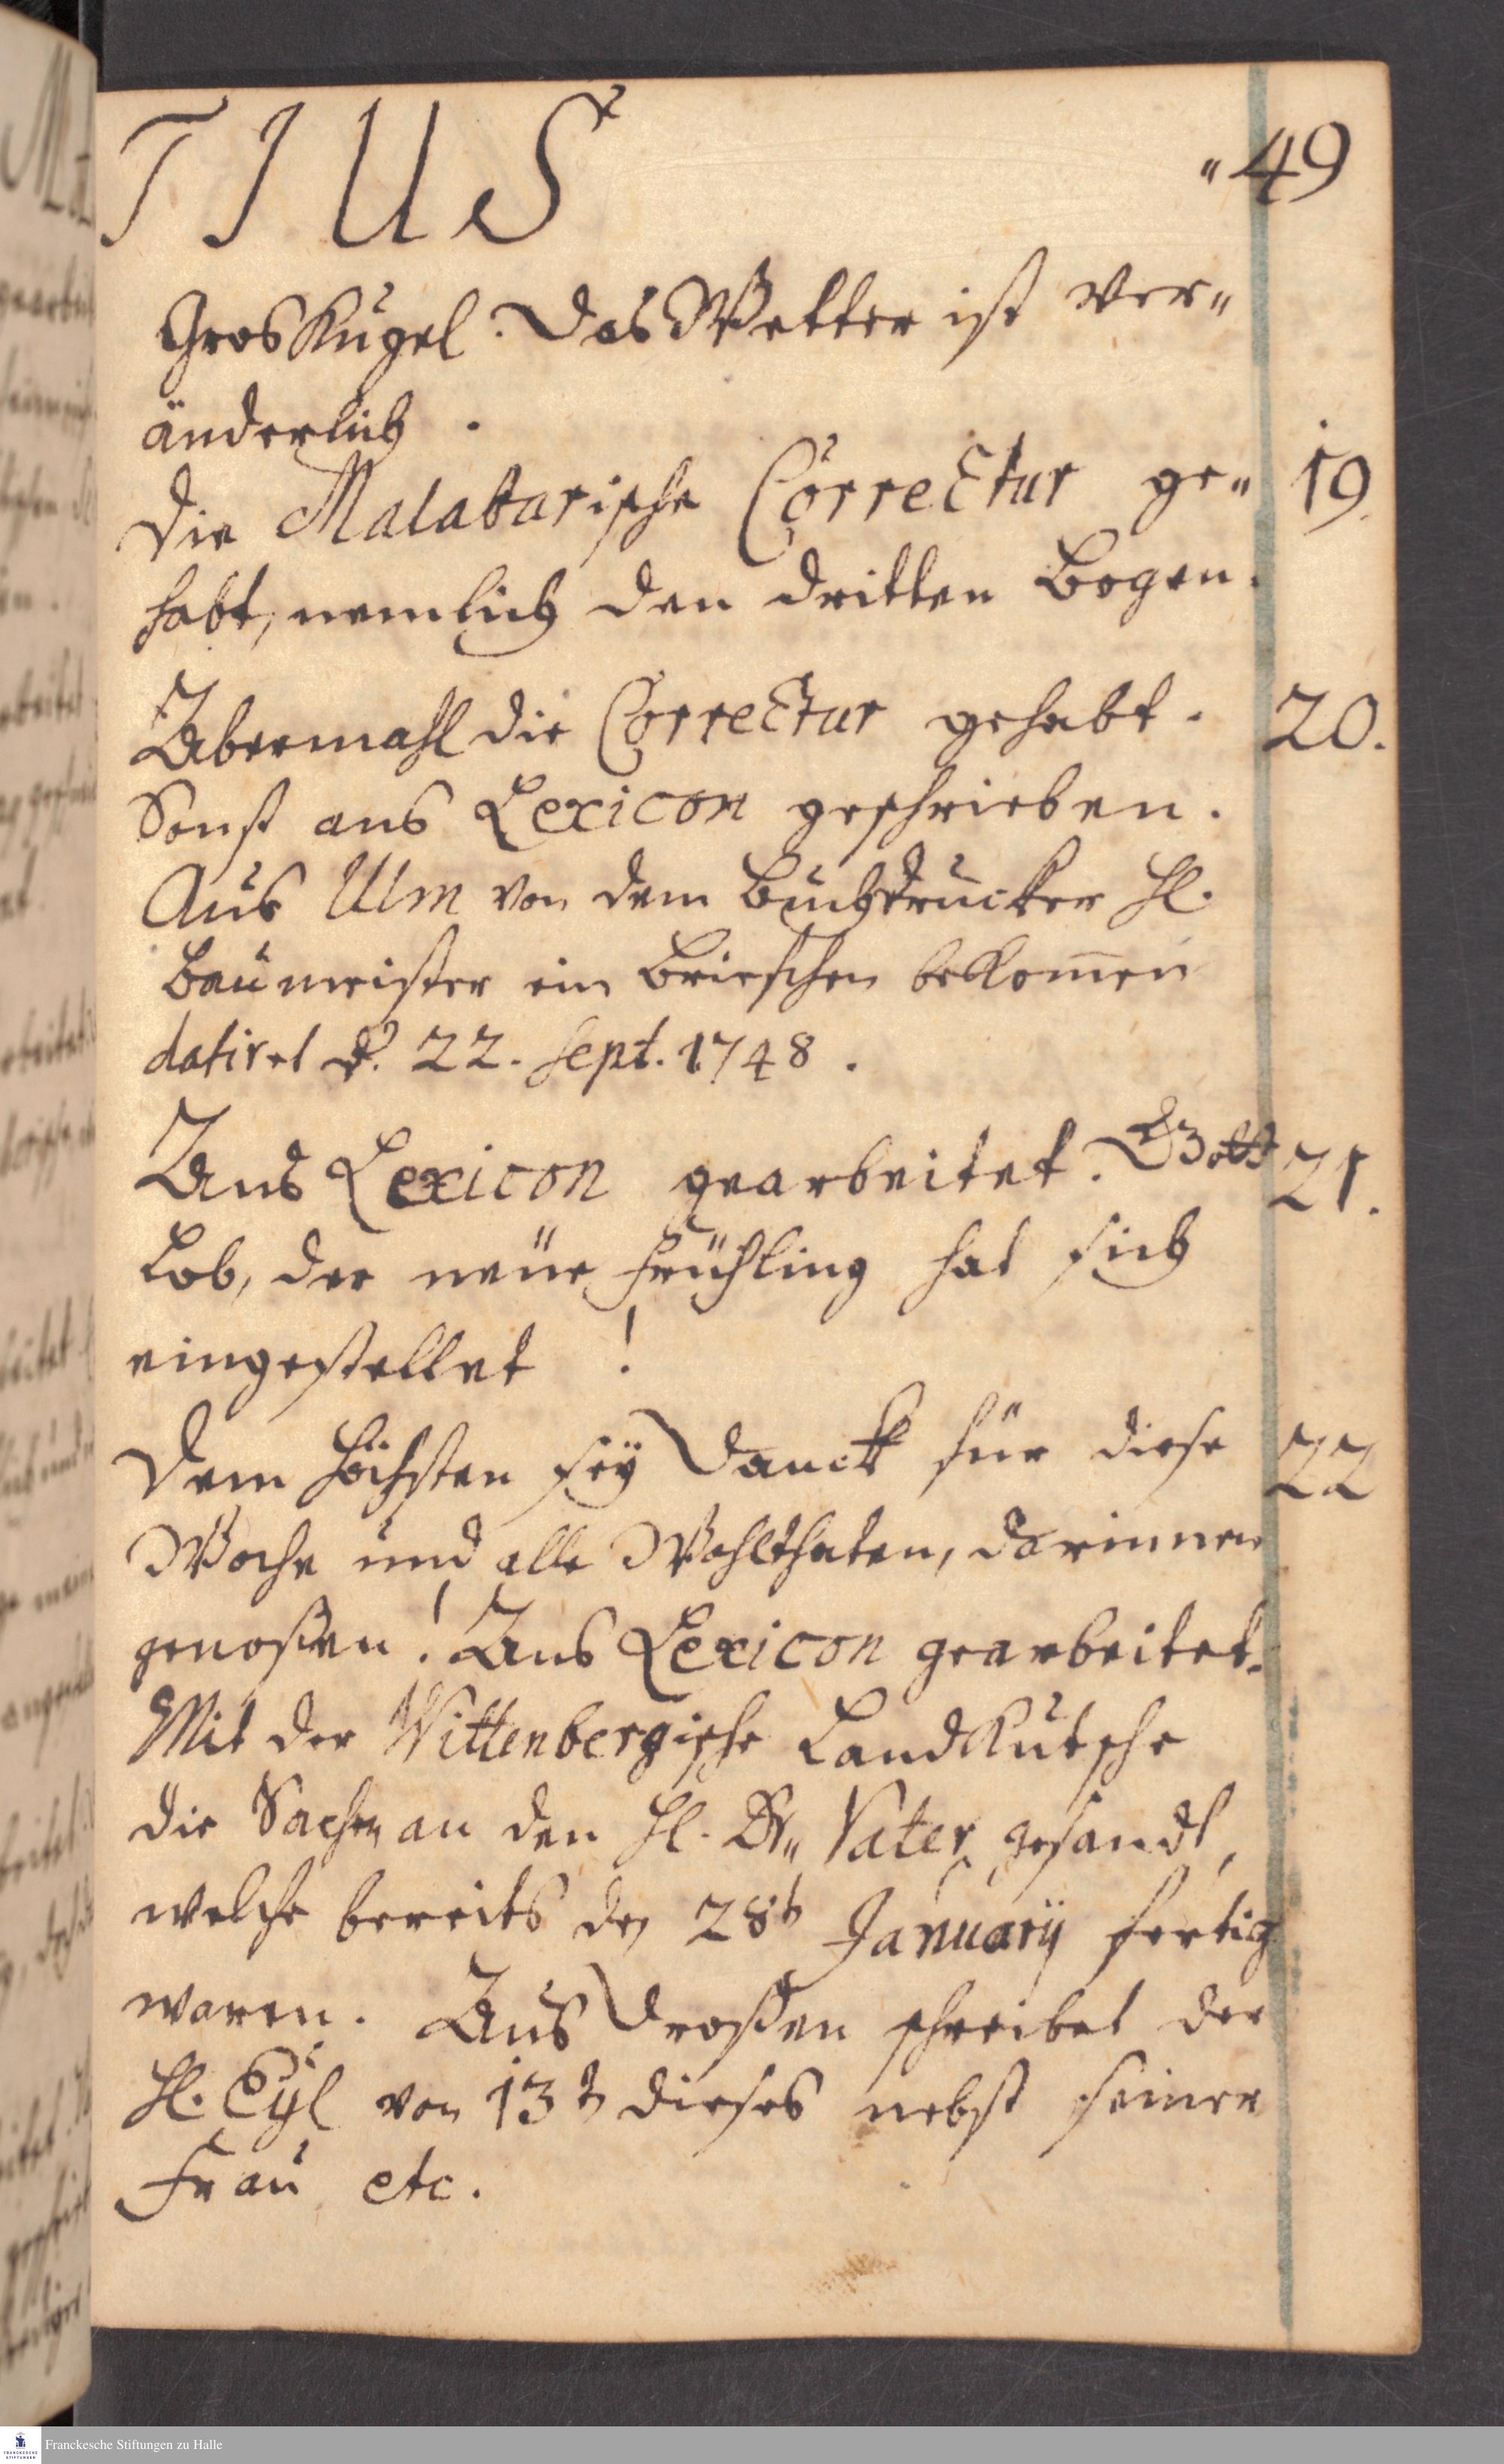 TIUS „49
Gros Kugel. Das Wetter ist ver„
änderlich.
Die Malabarische Correctur ge„ 19.
habt, nemlich den dritten Bogen.
Abermahl die Correctur gehabt. 20.
Sonst ans Lexicon geschrieben.
Aus Ulm von dem Buchdrucker H.
Baumeister ein Briefchen bekom̄en
datiret d. 22. Sept. 1748.
Ans Lexicon gearbeitet. Gott 21.
Lob, der neüe Frühling hat sich
eingestellet!
Dem Höchsten seÿ Danck für diese 22
Woche und alle Wohlthaten, darinnen
genoßen! Ans Lexicon gearbeitet.
Mit der Wittenbergische LandKutsche
die Sachen an den H. Dr„ Vater gesandt,
welche bereits den 28t Januarÿ fertig
waren. Aus Droßen schreibet der
H. Eÿl von 13t dieses nebst seiner
Frau etc.
Franckesche Stiftungen zu Halle